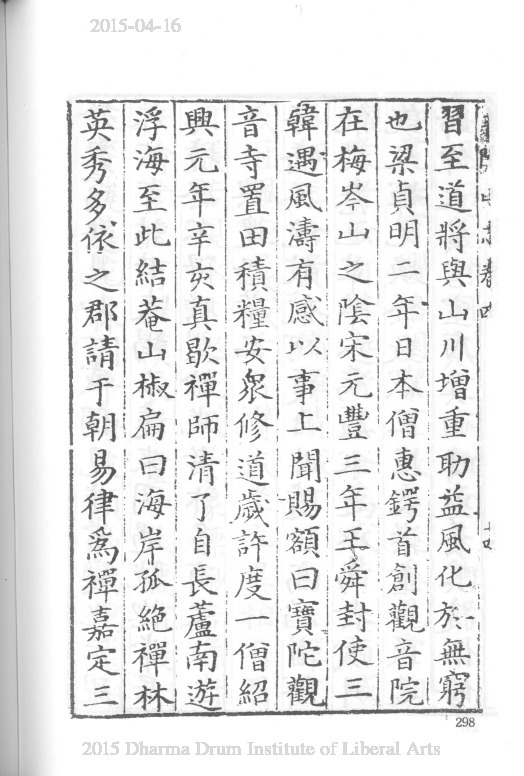 2015-04-16
習至道將與山川增重助益風化於無窮
也梁貞明二年日本僧惠鍔首創觀音院
在梅岑山之陰宋元豐三年王舜封使三
韓遇風濤有感以事上聞賜額曰寶陀觀
音寺置田積糧安眾修道歲許度一僧紹
興元年辛亥真歇禪師清了自長蘆南遊
浮海至此結菴山椒扁曰海岸孤絕禪林
英秀多依之郡請于朝易律為禪嘉定三
298
2015 Dharma Drum Institute of Liberal Arts